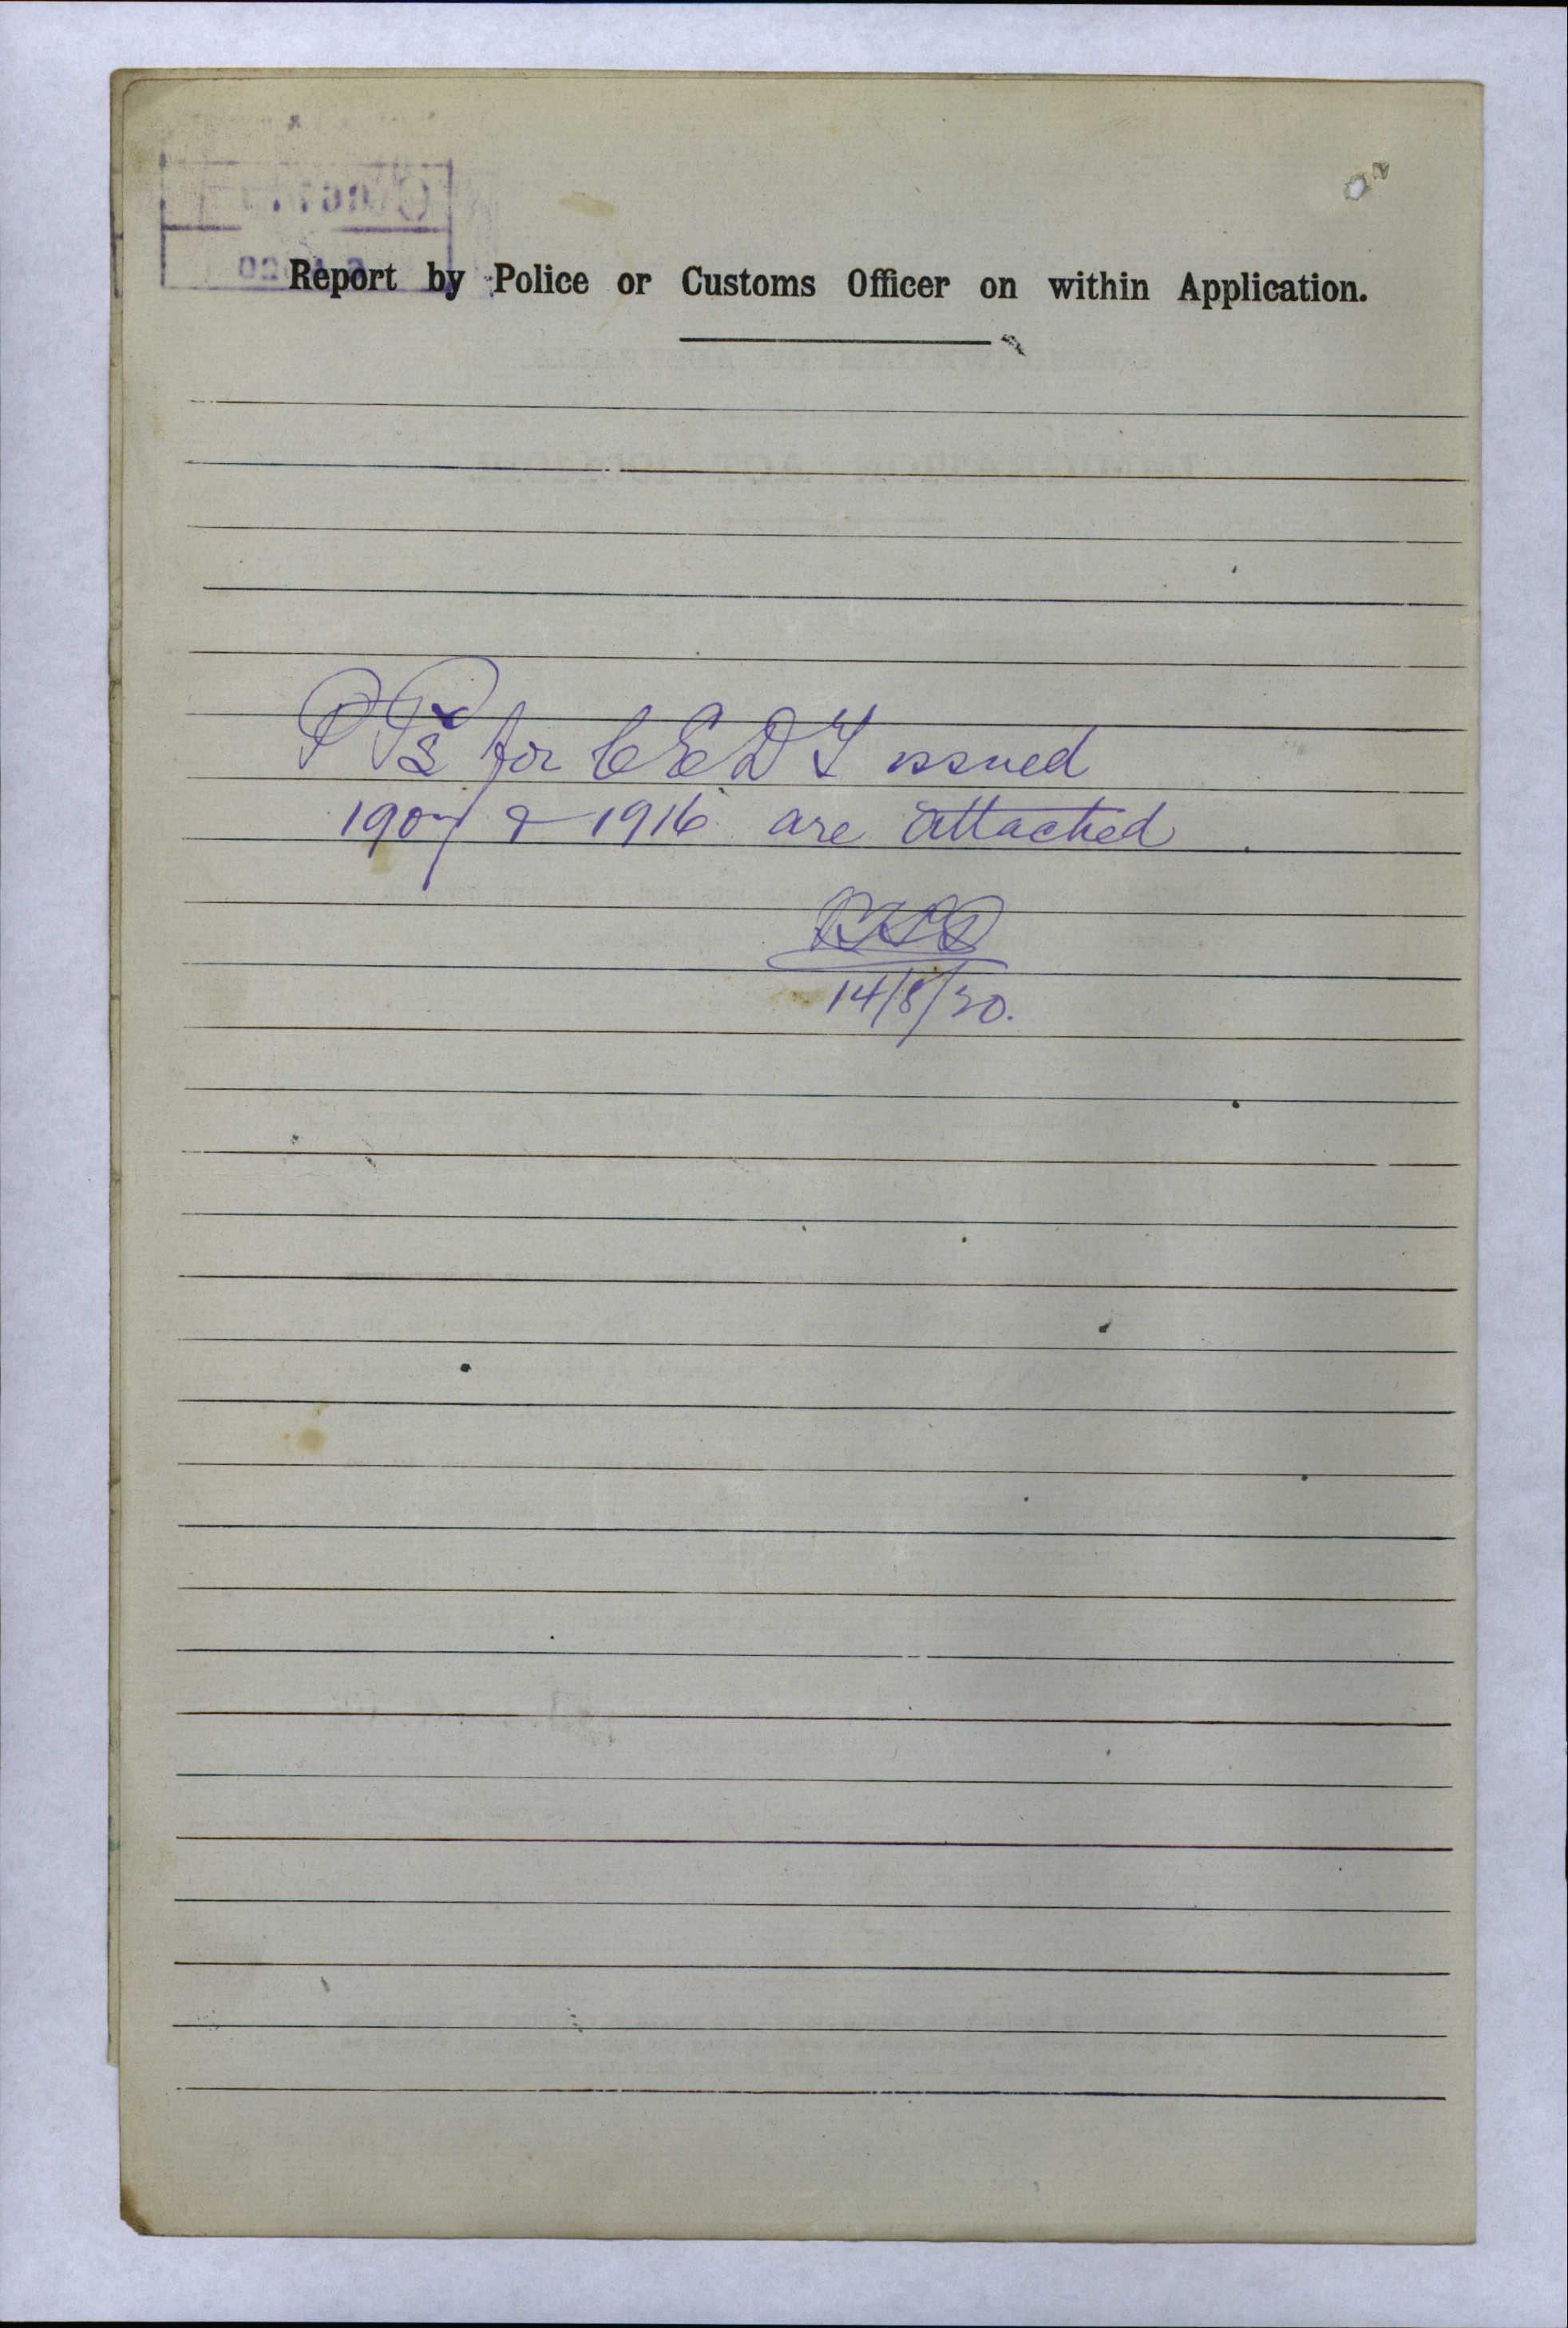 Report by Police or Customs Officer on within Application.
PPs for CEDT issued
1907 & 1916 are attached
14/8/20.